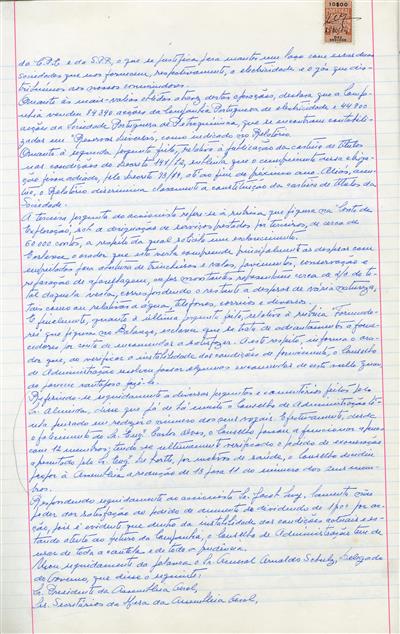 10$00
da C.P.E. e da S.P.P., o que se justifica para manter um laço com essas duas
Sociedades que nos fornecem, respectivamente, a electricidade e o gás que dis-
tribuimos aos nossos consumidores.
Quanto às mais-valias obtidas através destas operações, declara que a Compa-
nhia vendeu 14.390 acções da Companhia Portuguesa de electricidade e 44.800
acções da Sociedade Portuguesa de Petroquímica, que se encontram contabili-
zadas em "Reservas diversas", como indicado no Relatório.
Quanto à segunda pergunta feita, relativa à publicação da carteira de títulos
nas condições do Decreto, explicita que o cumprimento dessa obriga-
ção fica adiado, pelo Decreto, até ao fim do próximo ano. Aliás, acen-
tua, o Relatório discrimina claramente a constituição da carteira de títulos da
Sociedade.
A terceira pergunta do accionista refere-se à rubrica que figura na Conta de
Exploração, sob a designação de serviços prestados por terceiros, de cerca de
60.000 contos, a respeito da qual solicita um esclarecimento.
Esclarece o orador que esta verba compreende principalmente as despesas com
empreitadas para abertura de trincheiras e valas, pavimentos, conservação e
reparação de aparelhagem, cujos montantes representam cerca de 2/3 do to-
tal daquela verba, correspondendo o restante a despesas de vária natureza,
tais como as relativas a água, telefones, correios e diversos.
E finalmente, quanto à última pergunta feita, relativa à rubrica Fornecedo-
res que figura no Balanço, esclarece que se trata de adiantamentos a forne-
cedores por conta de encomendas a satisfazer. A este respeito, informa o ora-
dor que, ao verificar a instabilidade das condições de fornecimento, o Conselho
de Administração resolveu passar algumas encomendas de certo vulto quan-
do parecer vantajoso fazê-lo.
Referindo-se seguidamente a diversas perguntas e comentários feitos pelo
Sr. Almeida, disse que já de há muito o Conselho de Administração ti-
nha pensado em reduzir o número dos seus vogais. Efectivamente, desde
o falecimento do Sr. Eng. Carlos Alves, o Conselho passou a funcionar apenas
com 12 membros; tendo-se ultimamente verificado o pedido de exoneração
apresentado pelo Sr. Eng., por motivos de saúde, o Conselho decidiu
propor à Assembleia a redução de 13 para 11 do número dos seus mem-
bros.
Respondendo seguidamente ao accionista Sr. Jacob Levy, lamenta não
poder dar satisfação ao pedido de aumento do dividendo de 1$00 por ac-
ção, pois é evidente que dentro da instabilidade das condições actuais e es-
tando atento ao futuro da Companhia, o Conselho de Administração tem de
usar de toda a cautela e de toda a prudência.
Usou seguidamente da palavra o Sr. General Arnaldo Schulz, Delegado
do Governo, que disse o seguinte:
Sr. Presidente da Assembleia Geral,
Srs. Secretários da Mesa da Assembleia Geral,